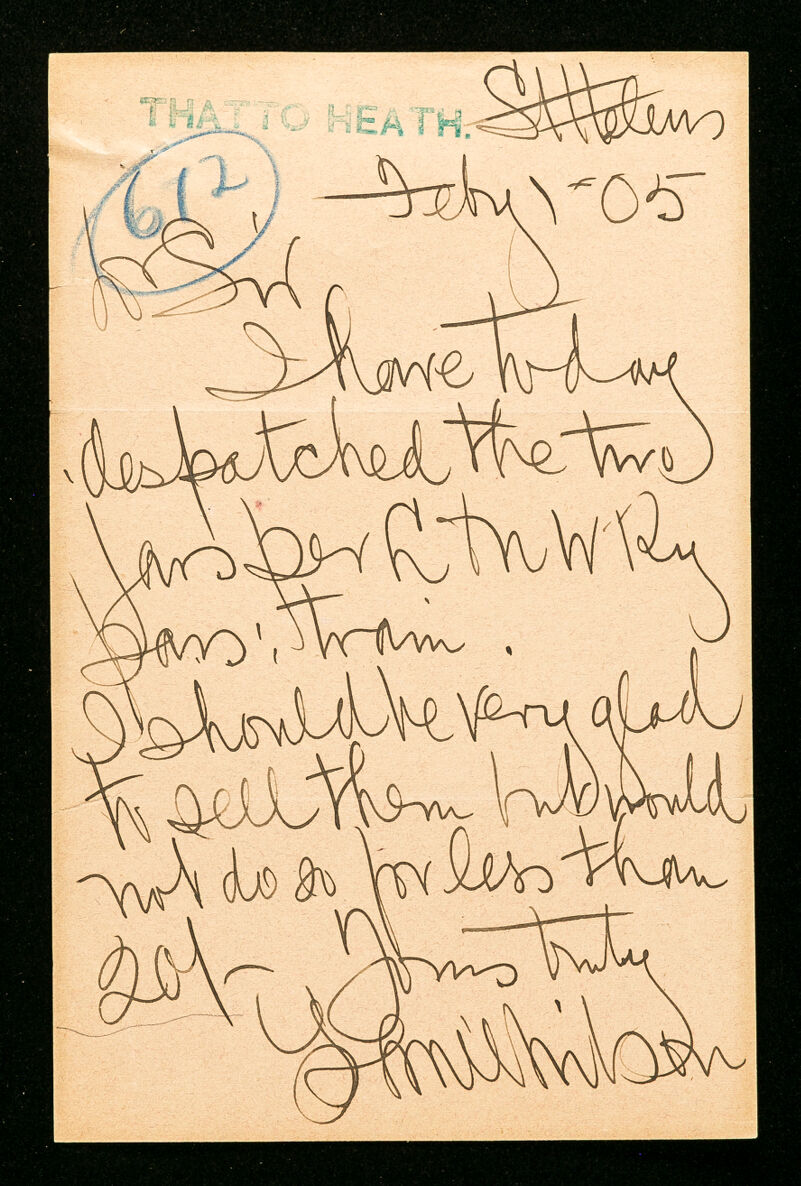 THATTO HEATH. St Helens
Feby 1-05
612
Dr Sir
I have today
despatched the two
jars per L & N W Ry
pass: train.
I should be very glad
to sell them but would
not do so for less than
20/- Yours truly
Wilson